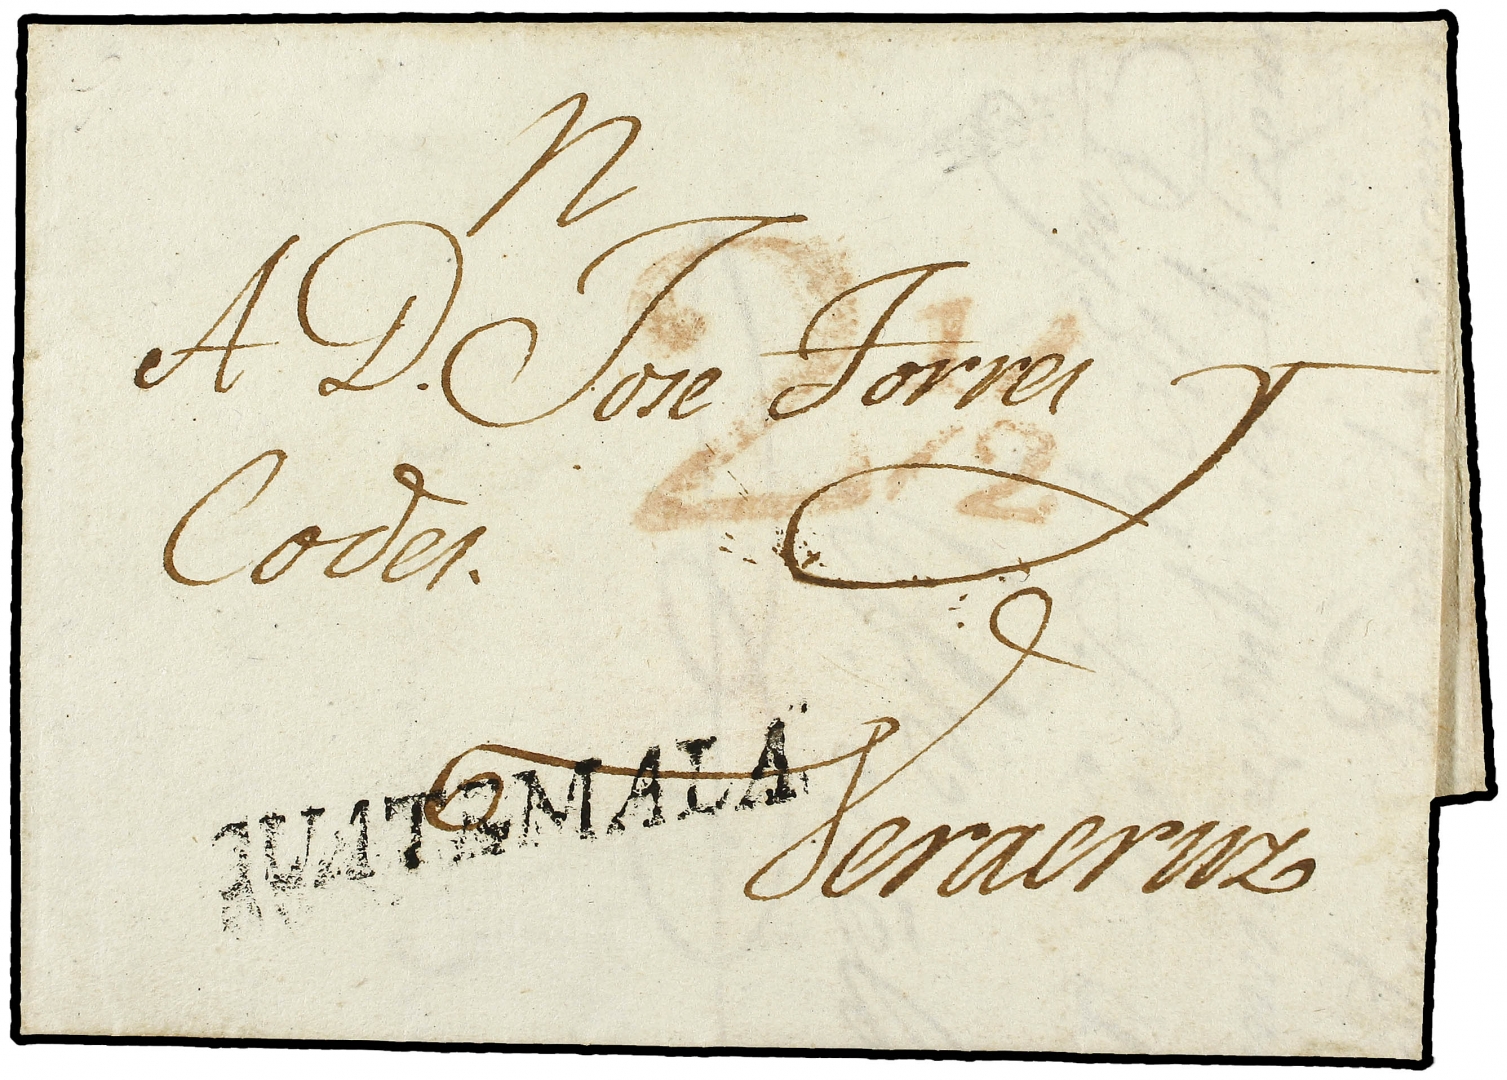 n
A D. Jose Torres
2 1/2
Codes.
GUATEMALA
Veracruz